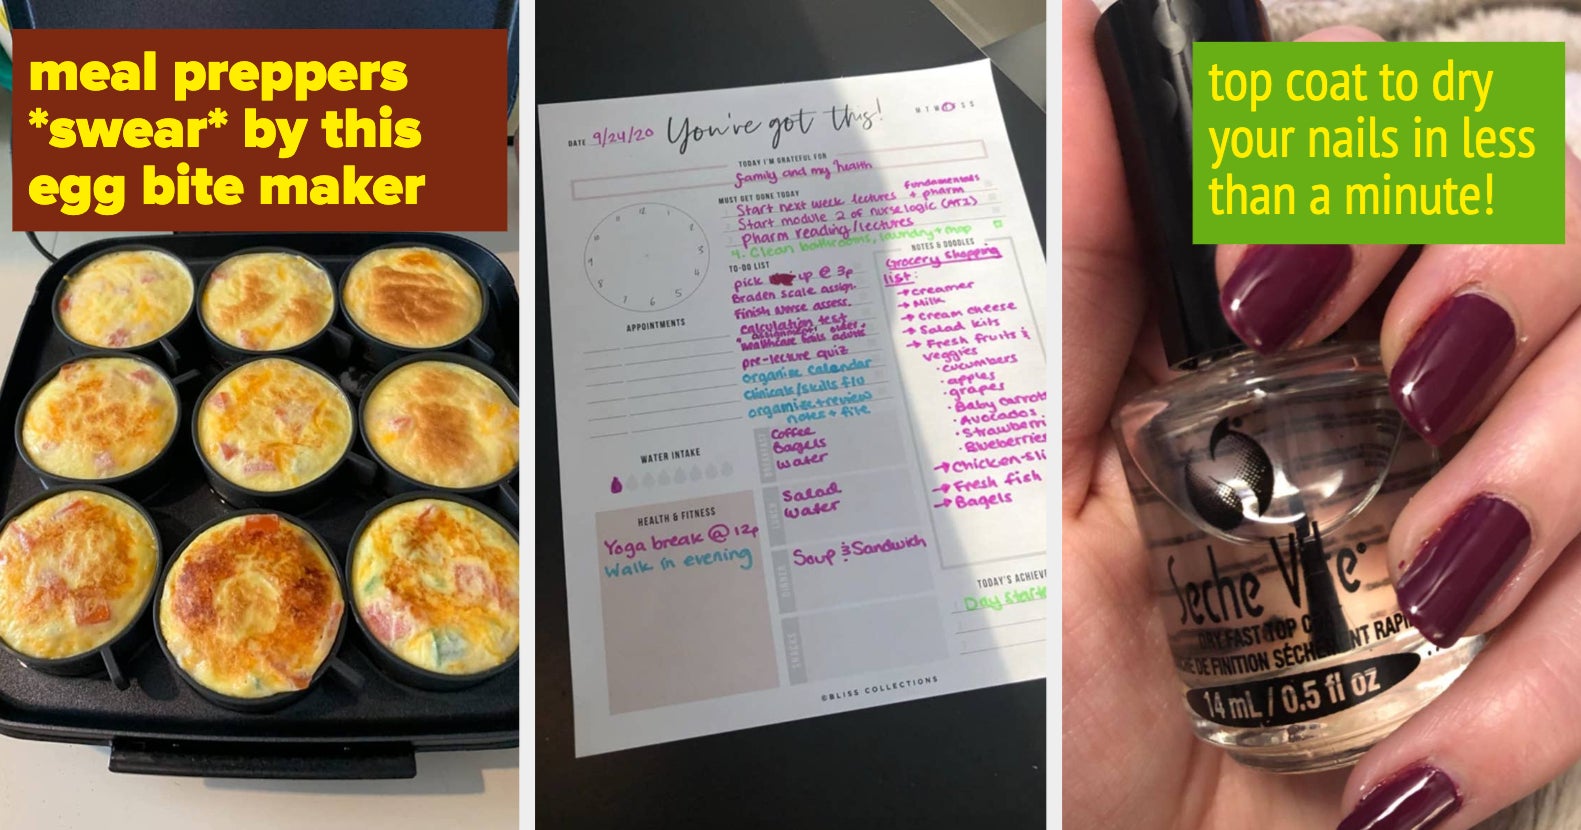 meal preppers
*swear* by this
egg bite maker
DATE 9/24/20 You've got this! M T W T F S S
TODAY I'M GRATEFUL FOR
family and my health
MUST GET DONE TODAY
1. Start next week lectures fundamentals + pharm
2. Start module 2 of nurse logic (ATI)
3. Pharm reading/lectures
4. Clean bathrooms, laundry + mop
12
11
1
2
10
3
9
4
8
5
7
6
TO-DO LIST
pick up @ 3p
Braden scale assign.
Finish Nurse assess.
calculation test
pre-lecture quiz
organize calendar
Clinicals/skills flu
organize + review
notes + file
APPOINTMENTS
WATER INTAKE
HEALTH & FITNESS
Yoga break @ 12p
Walk in evening
BREAKFAST
Coffee
Bagels
water
LUNCH
Salad
water
DINNER
Soup & Sandwich
SNACKS
NOTES & DOODLES
Grocery shopping
list:
→ creamer
→ Milk
→ Cream cheese
→ Salad kits
→ Fresh fruits &
veggies
· cucumbers
· apples
· grapes
· Baby carrots
· Avocados
· Strawberri
· Blueberries
→ Chicken-sli
→ Fresh fish
→ Bagels
TODAY'S ACHIEV
1. Day start
©BLISS COLLECTIONS
top coat to dry
your nails in less
than a minute!
Seche Vite
DRY FAST TOP C
DE FINITION SÉCHEMENT RAPI
14 mL / 0.5 fl oz